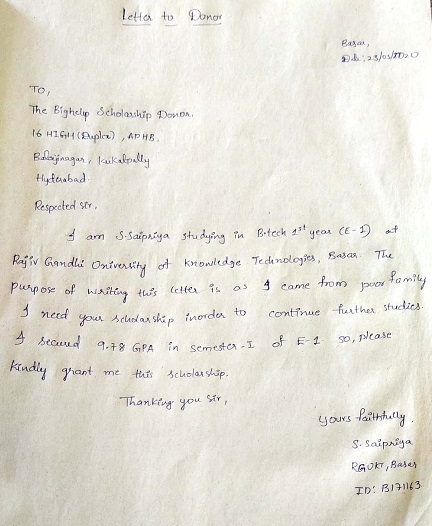 Letter to Donor
Basar,
Date: 23/03/2020
To,
The Bighelp Scholarship Donor,
16 HIGH (Duplex), APHB,
Balajinagar, Kukatpally
Hyderabad.
Respected Sir,
I am S.Saipriya studying in B.tech 1st year (E-1) at
Rajiv Gandhi University of Knowledge Technologies, Basar. The
purpose of writing this letter is as I came from poor family
I need your scholarship inorder to continue further studies.
I secured 9.78 GPA in semester-I of E-1 so, please
kindly grant me this scholarship.
Thanking you Sir,
yours faithfully,
S. Saipriya
RGUKT, Basar
ID: B171163